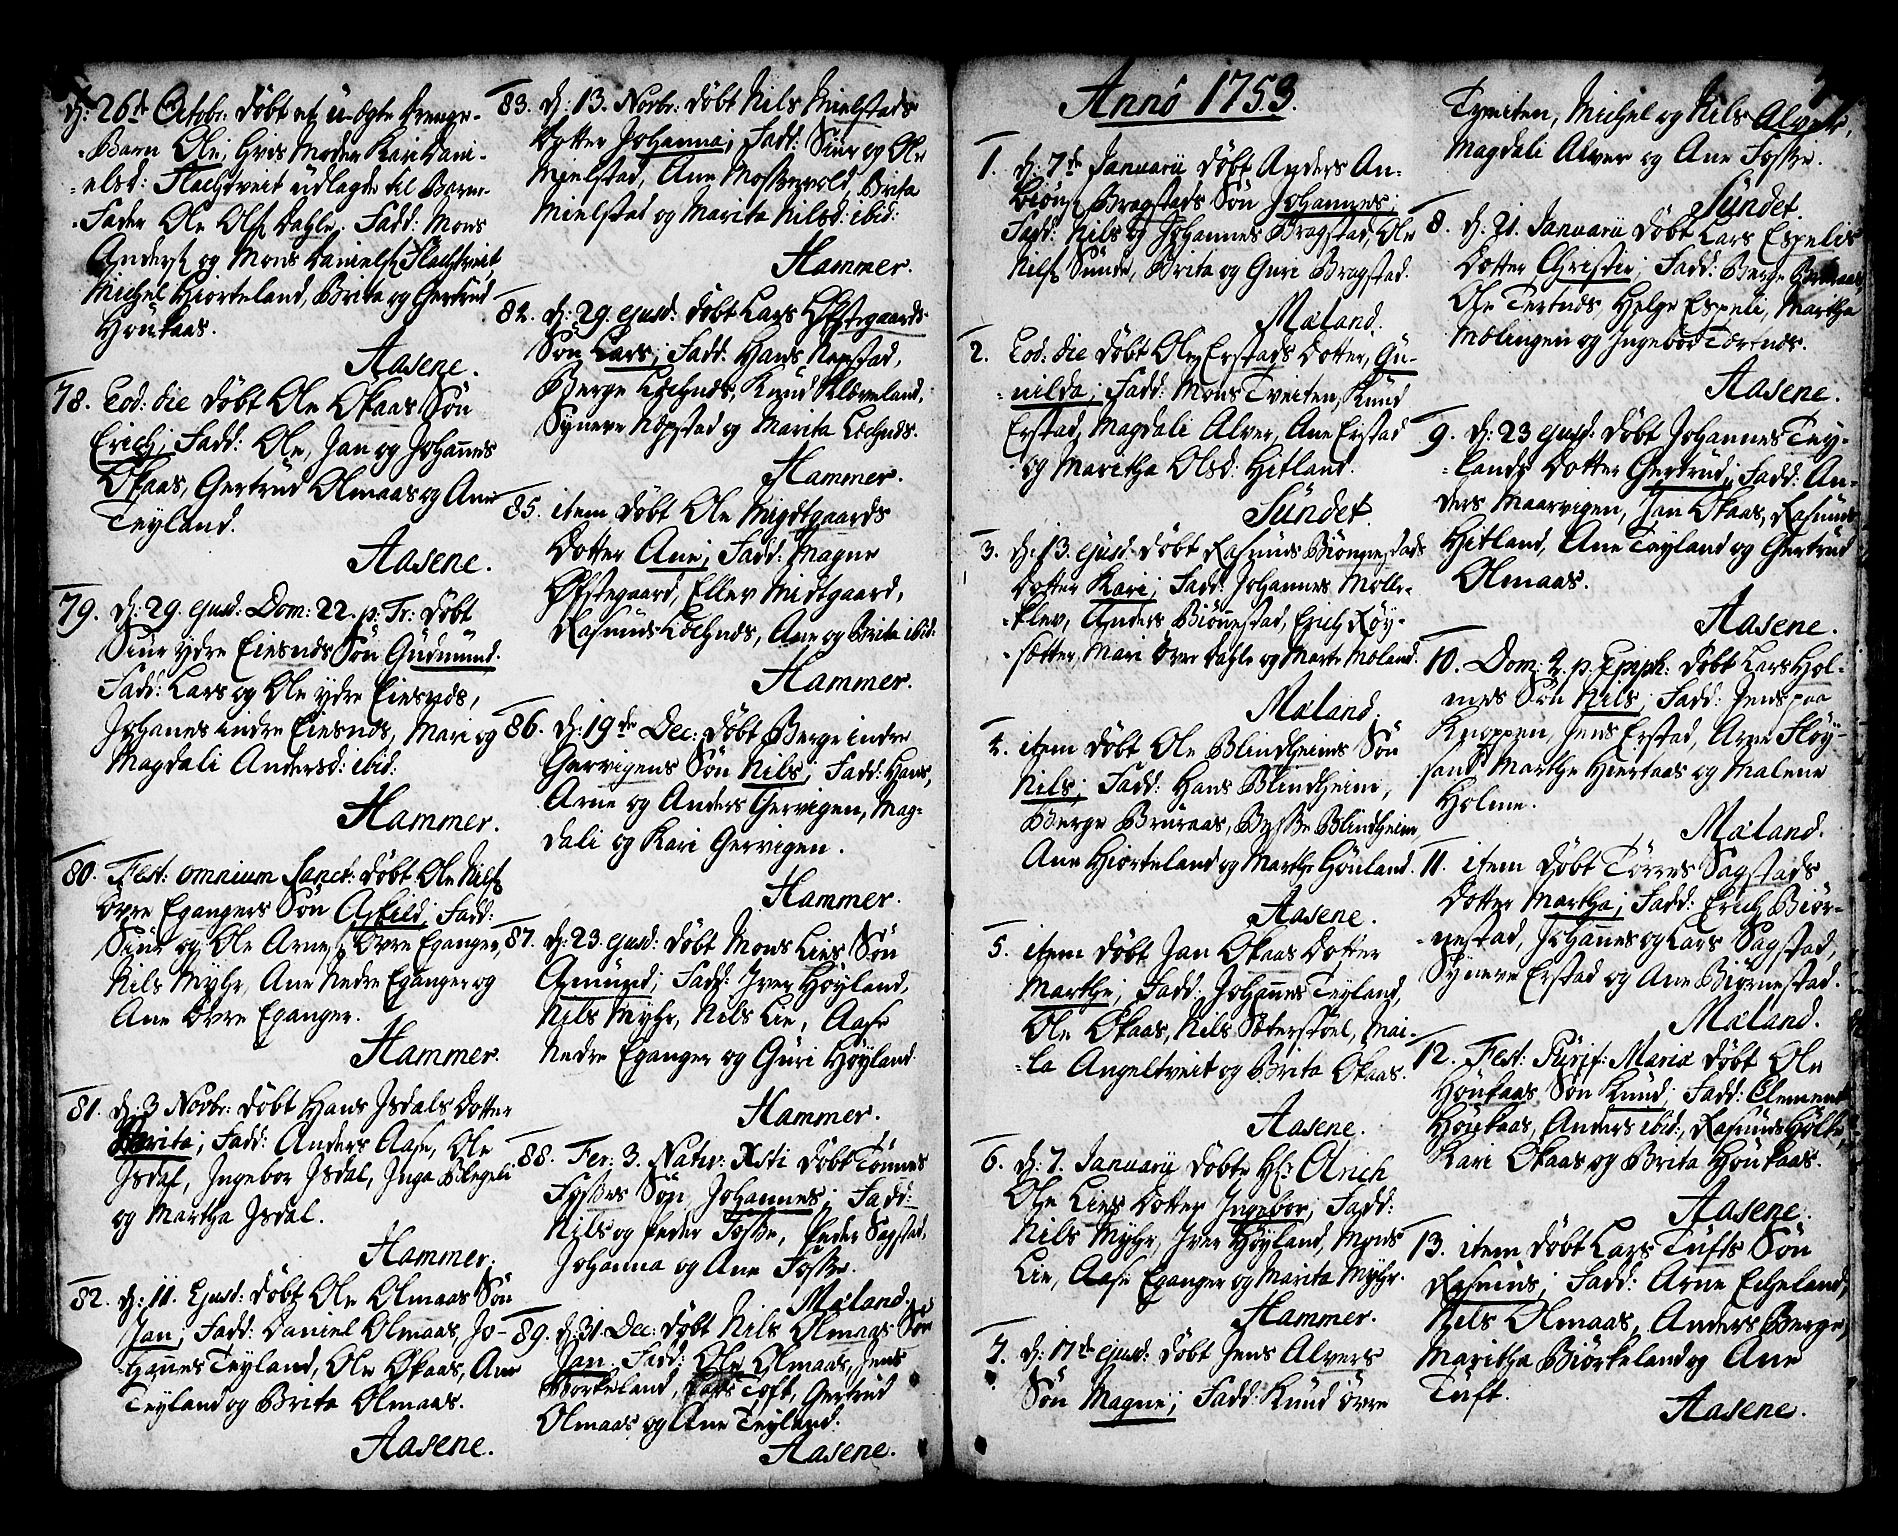 d: 26de Octobr: døbt et u-ægte Drenge-
Barn Ole; hvis Moder Kari Dani-
elsd: Flachtveit udlagde til Barne-
Fader Ole Ols: Dahle. Fadd: Mons
Anders: og Mons Daniels: Flachtveit,
Michel Hiorteland, Brita og Gertrud
Houkaas.
Aasene.
78. Eod: die døbt Ole Okaas Søn
Erich; Fadd: Ole, Jan og Johannes
Okaas, Gertrud Olmaas og Ane
Teyland.
Aasene.
79. d: 29. ejusd: Dom: 22. p. Tr: døbt
Siur ydre Eiesnds Søn Gudmund.
Fadd: Lars og Ole ydre Eiesnds,
Johanes indre Eiesnds, Mari og
Magdali Andersd: ibid:
Hammer.
80. Fest: omnium Sanct: døbt Ole Nils:
Øvre Egangers Søn Askild; Fadd:
Siur og Ole Arnes: Øvre Eganger,
Nils Myhr, Ane Nedre Eganger og
Ane Øvre Eganger.
Hammer.
81. d: 3 Novbr: døbt Hans Isdals Dotter
Marita; Fadd: Anders Aase, Ole
Isdal, Ingebor Isdal, Inga Blegeli
og Martha Isdal.
Hammer.
82. d: 11. Ejusd: døbt Ole Olmaas Søn
Jan; Fadd: Daniel Olmaas, Jo-
hannes Teyland, Ole Okaas, Ane
Teyland og Brita Olmaas.
Aasene.
83. d: 13. Novbr: døbt Nils Mielstads
Dotter Johanna; Fadd: Siur og Ole
Mielstad, Ane Mossevold, Brita
Mielstad og Marita Nilsd: ibid:
Hammer.
84. d: 29. ejusd: døbt Lars Øfstegaards
Søn Lars; Fadd: Hans Nepstad,
Berge Lochnds, Knud Kleveland,
Syneve Nepstad og Marita Lochnds.
Hammer.
85. item døbt Ole Midtgaards
Dotter Ane; Fadd: Magne
Øfstegaard, Ellev Midtgaard,
Rasmus Lochnds, Ane og Brita ibid:
Hammer.
86. d: 19de Dec: døbt Berge indre
Gervigens Søn Nils; Fadd: Hans,
Arne og Anders Gervigen, Mag-
dali og Kari Gervigen.
Hammer.
87. d: 23. ejusd: døbt Mons Lies Søn
Amund; Fadd: Iver Høyland,
Nils Myhr, Nils Lie, Aase
Nedre Eganger og Guri Høyland
Hammer.
88. Fer: 3. Nativ: Xsti døbt Tønnes
Fosses Søn Johannes; Fadd:
Nils og Peder Fosse, Peder Sagstad,
Johanna og Ane Fosse.
Mæland.
89. d: 31 Dec: døbt Nils Olmaas Søn
Jan. Fadd: Ole Olmaas, Jens
Biorkeland, Lars Toft, Gertrud
Olmaas og Ane Teyland.
Aasene.
Anno 1753.
1. d: 7de Januarii døbt Anders An-
biøns: Bragstads Søn Johannes;
Fadd: Nils og Johannes Bragstad, Ole
Nils: Sunde, Brita og Guri Bragstad.
Mæland.
2. Eod: die døbt Ole Erstads Dotter, Gu-
nilda; Fadd: Mons Tveiten, Knud
Erstad, Magdali Alver, Ane Erstad
og Maritha Olsd: Hitland.
Sundet.
3. d: 13. ejusd: døbt Rasmus Biørnestads
Dotter Kari; Fadd: Johannes Molle-
klev, Anders Biørnestad, Erich Røy-
sætter, Mari øvre Dahle og Marte Moland.
Mæland.
4. item døbt Ole Blindheims Søn
Nils; Fadd: Hans Blindheim,
Berge Bruraas, Bysse Blindheim,
Ane Hiorteland og Marthe Hopland.
Aasene.
5. item døbt Jan Okaas Dotter
Marthe; Fadd: Johannes Teyland,
Ole Okaas, Nils Sæterstoel, Mai-
la Angeltveit og Brita Okaas.
Aasene.
6. d: 7. Januarii døbte Hr: Ulrich
Ole Lies Dotter Ingebor; Fadd:
Nils Myhr, Iver Høyland, Mons
Lie, Aase Eganger og Marita Myhr.
Hammer.
7. d: 17de ejusd: døbt Jens Alvers
Søn Magne; Fadd: Knud øvre
Tveiten, Michel og Nils Alver,
Magdali Alver og Ane Fosse.
Sundet.
8. d: 21. Januarii døbt Lars Espelis
Dotter Christie; Fadd: Berge Bruraas,
Ole Tertnds, Helge Espeli, Martha
Mælingen og Ingebor Tertnds.
Aasene.
9. d: 23 ejusd: døbt Johannes Tey-
lands Dotter Gertrud; Fadd: An-
ders Maarvigen, Jan Okaas, Rasmus
Hitland, Ane Teyland og Gertrud
Olmaas.
Aasene.
10. Dom: 4. p. Epiph: døbt Lars Hol-
mes Søn Nils; Fadd: Jens paa
Knappen, Jens Erstad, Arne Fløy-
sand Marthe Hiertaas og Malene
Holme.
Mæland.
11. item døbt Torres Sagstads
Dotter Martha; Fadd: Erich Biør-
nestad, Johannes og Lars Sagstad,
Syneve Erstad og Ane Biørnestad.
Mæland.
12. Fest: Purif: Mariæ døbt Ole
Houkaas Søn Knud; Fadd: Clement
Houkaas, Anders ibid:, Rasmus Holte,
Kari Okaas og Brita Houkaas.
Aasene.
13. item døbt Lars Tufts Søn
Rasmus; Fadd: Arne Echeland,
Nils Olmaas, Anders Berge,
Maritha Biørkeland og Ane
Tuft.
Aasene.